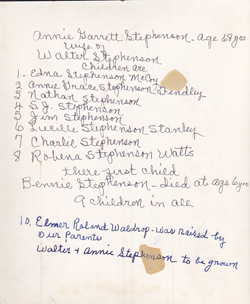 Annie Garrett Stephenson. Age 68 yrs
Wife of
Walter Stephenson
Children are
1. Edna Stephenson McCoy
2 Annie Grace Stephenson Hendley
3 Nathan Stephenson
4 S.J. Stephenson
5 Jim Stephenson
6 Lucille Stephenson Stanley
7 Charlie Stephenson
8 Robena Stephenson Watts
there first child
Bennie Stephenson - died at age 6 yrs
9 children in all
10. Elmer Roland Waldrop - was raised by
Our Parents
Walter + Annie Stephenson to be grown